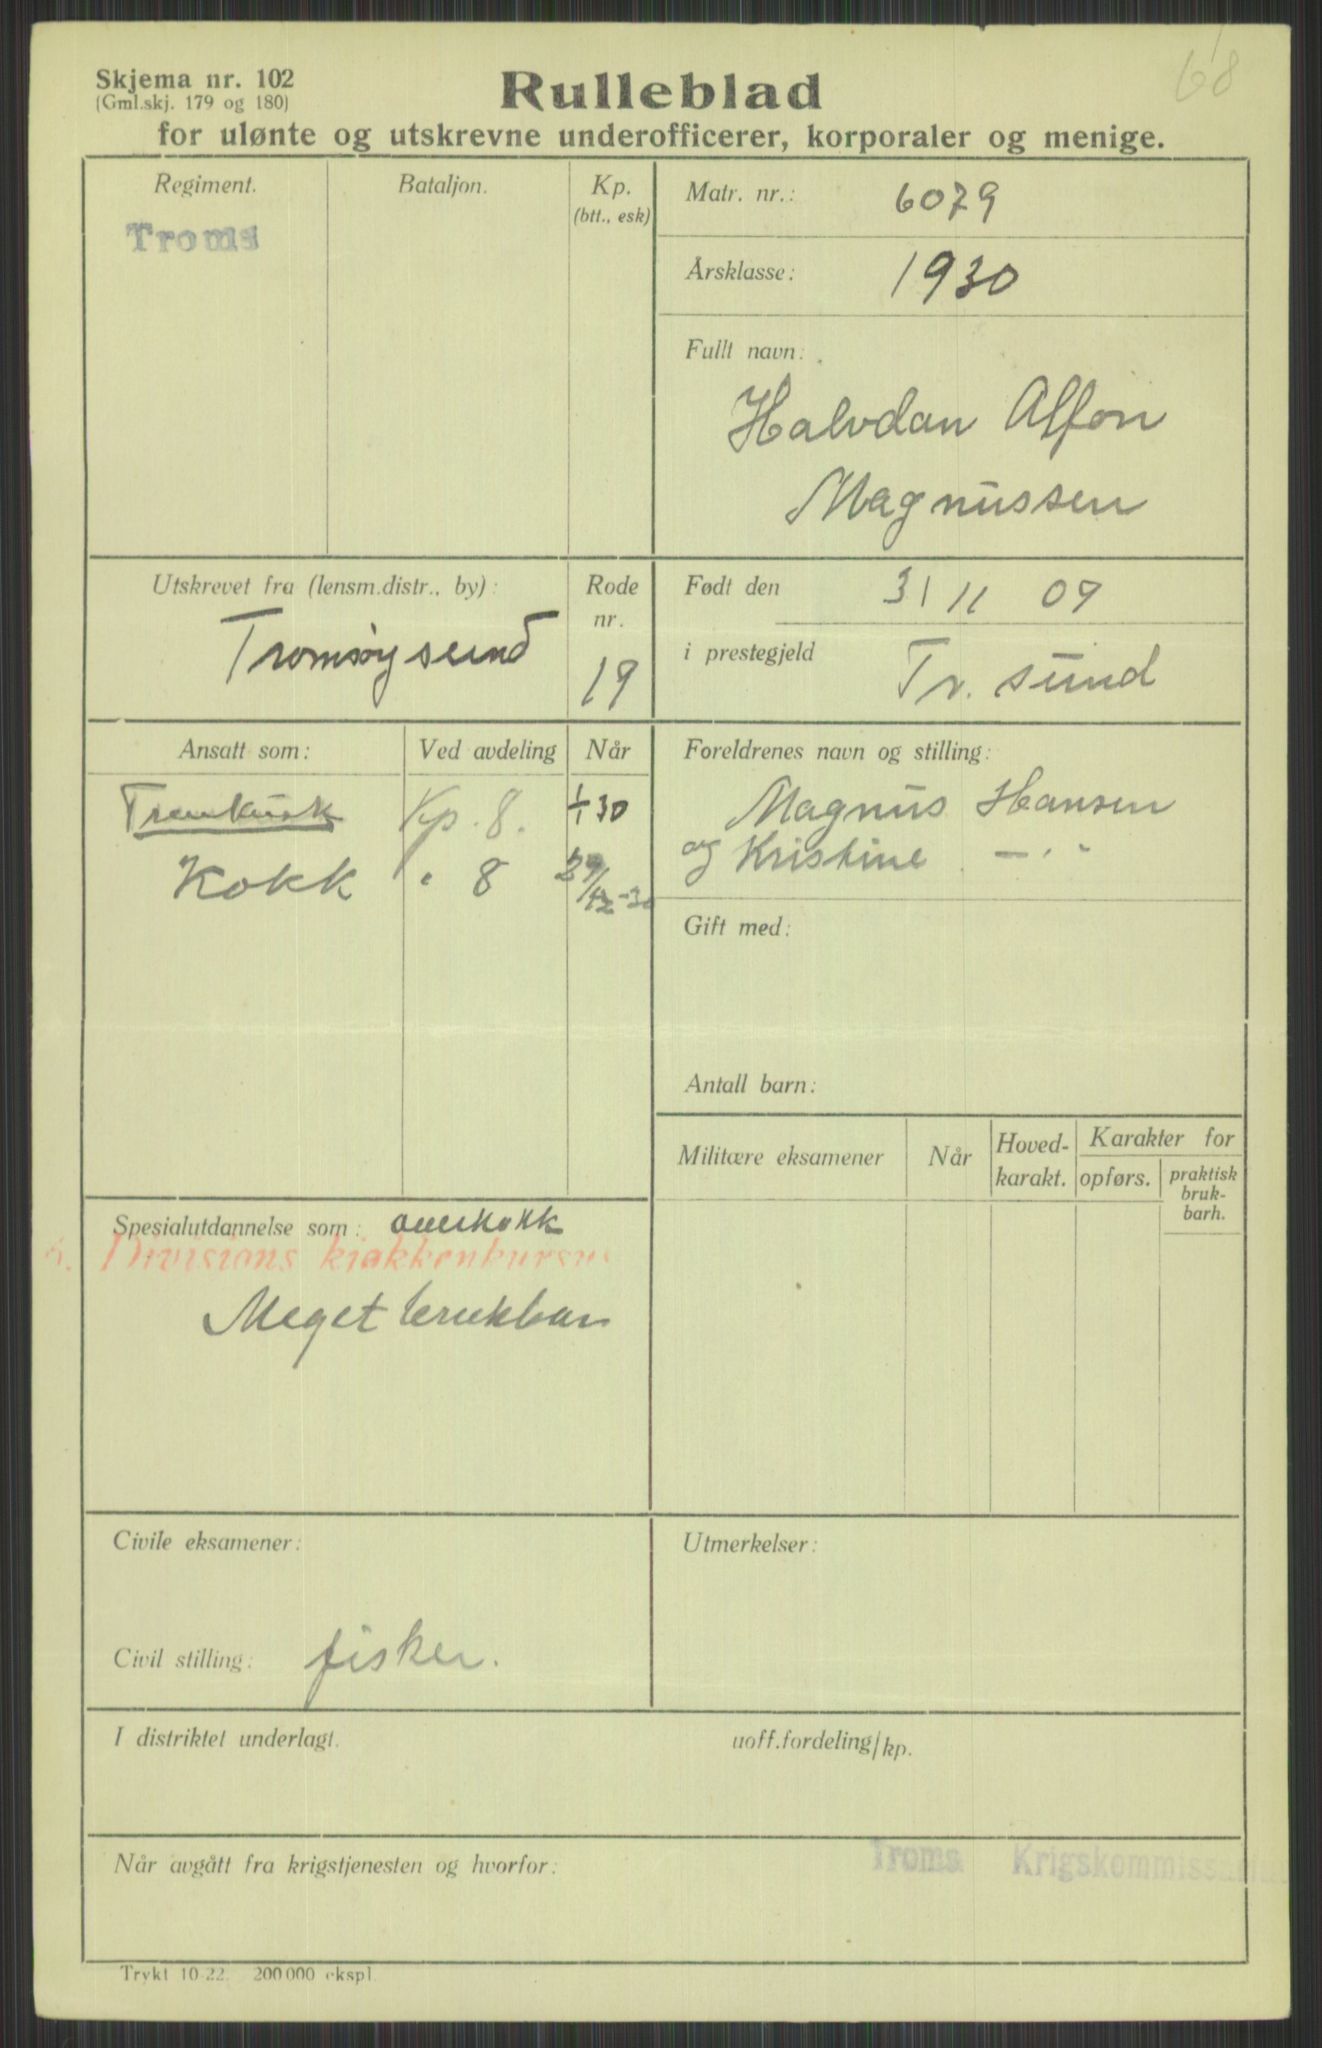 68
Skjema nr. 102
(Gml.skj. 179 og 180)
Rulleblad
for ulønte og utskrevne underofficerer, korporaler og menige.
Regiment.
Bataljon.
Kp.
(btt., esk)
Troms
Matr. nr.: 6079
Årsklasse: 1930
Fullt navn:
Halvdan Alfon
Magnussen
Utskrevet fra (lensm.distr., by):
Tromsøysund
Rode
nr.
19
Født den 31 11 09
i prestegjeld Tr. sund
Ansatt som:
Ved avdeling
Når
Trenkusk Kp. 8. 1/1 30
Kokk " 8
Foreldrenes navn og stilling:
Magnus Hansen
og Kristine — " -
Gift med:
Antall barn:
Militære eksamener
Når
Hoved-
karakt.
Karakter for
opførs.
praktisk
bruk-
barh.
Spesialutdannelse som: overkokk
6. Divisions kjøkkenkursus
Meget brukbar
Civile eksamener:
Utmerkelser:
Civil stilling: fisker.
I distriktet underlagt.
uoff.fordeling/kp.
Når avgått fra krigstjenesten og hvorfor:
Troms Krigskommissariat
Trykt 10-22. 200 000 ekspl.